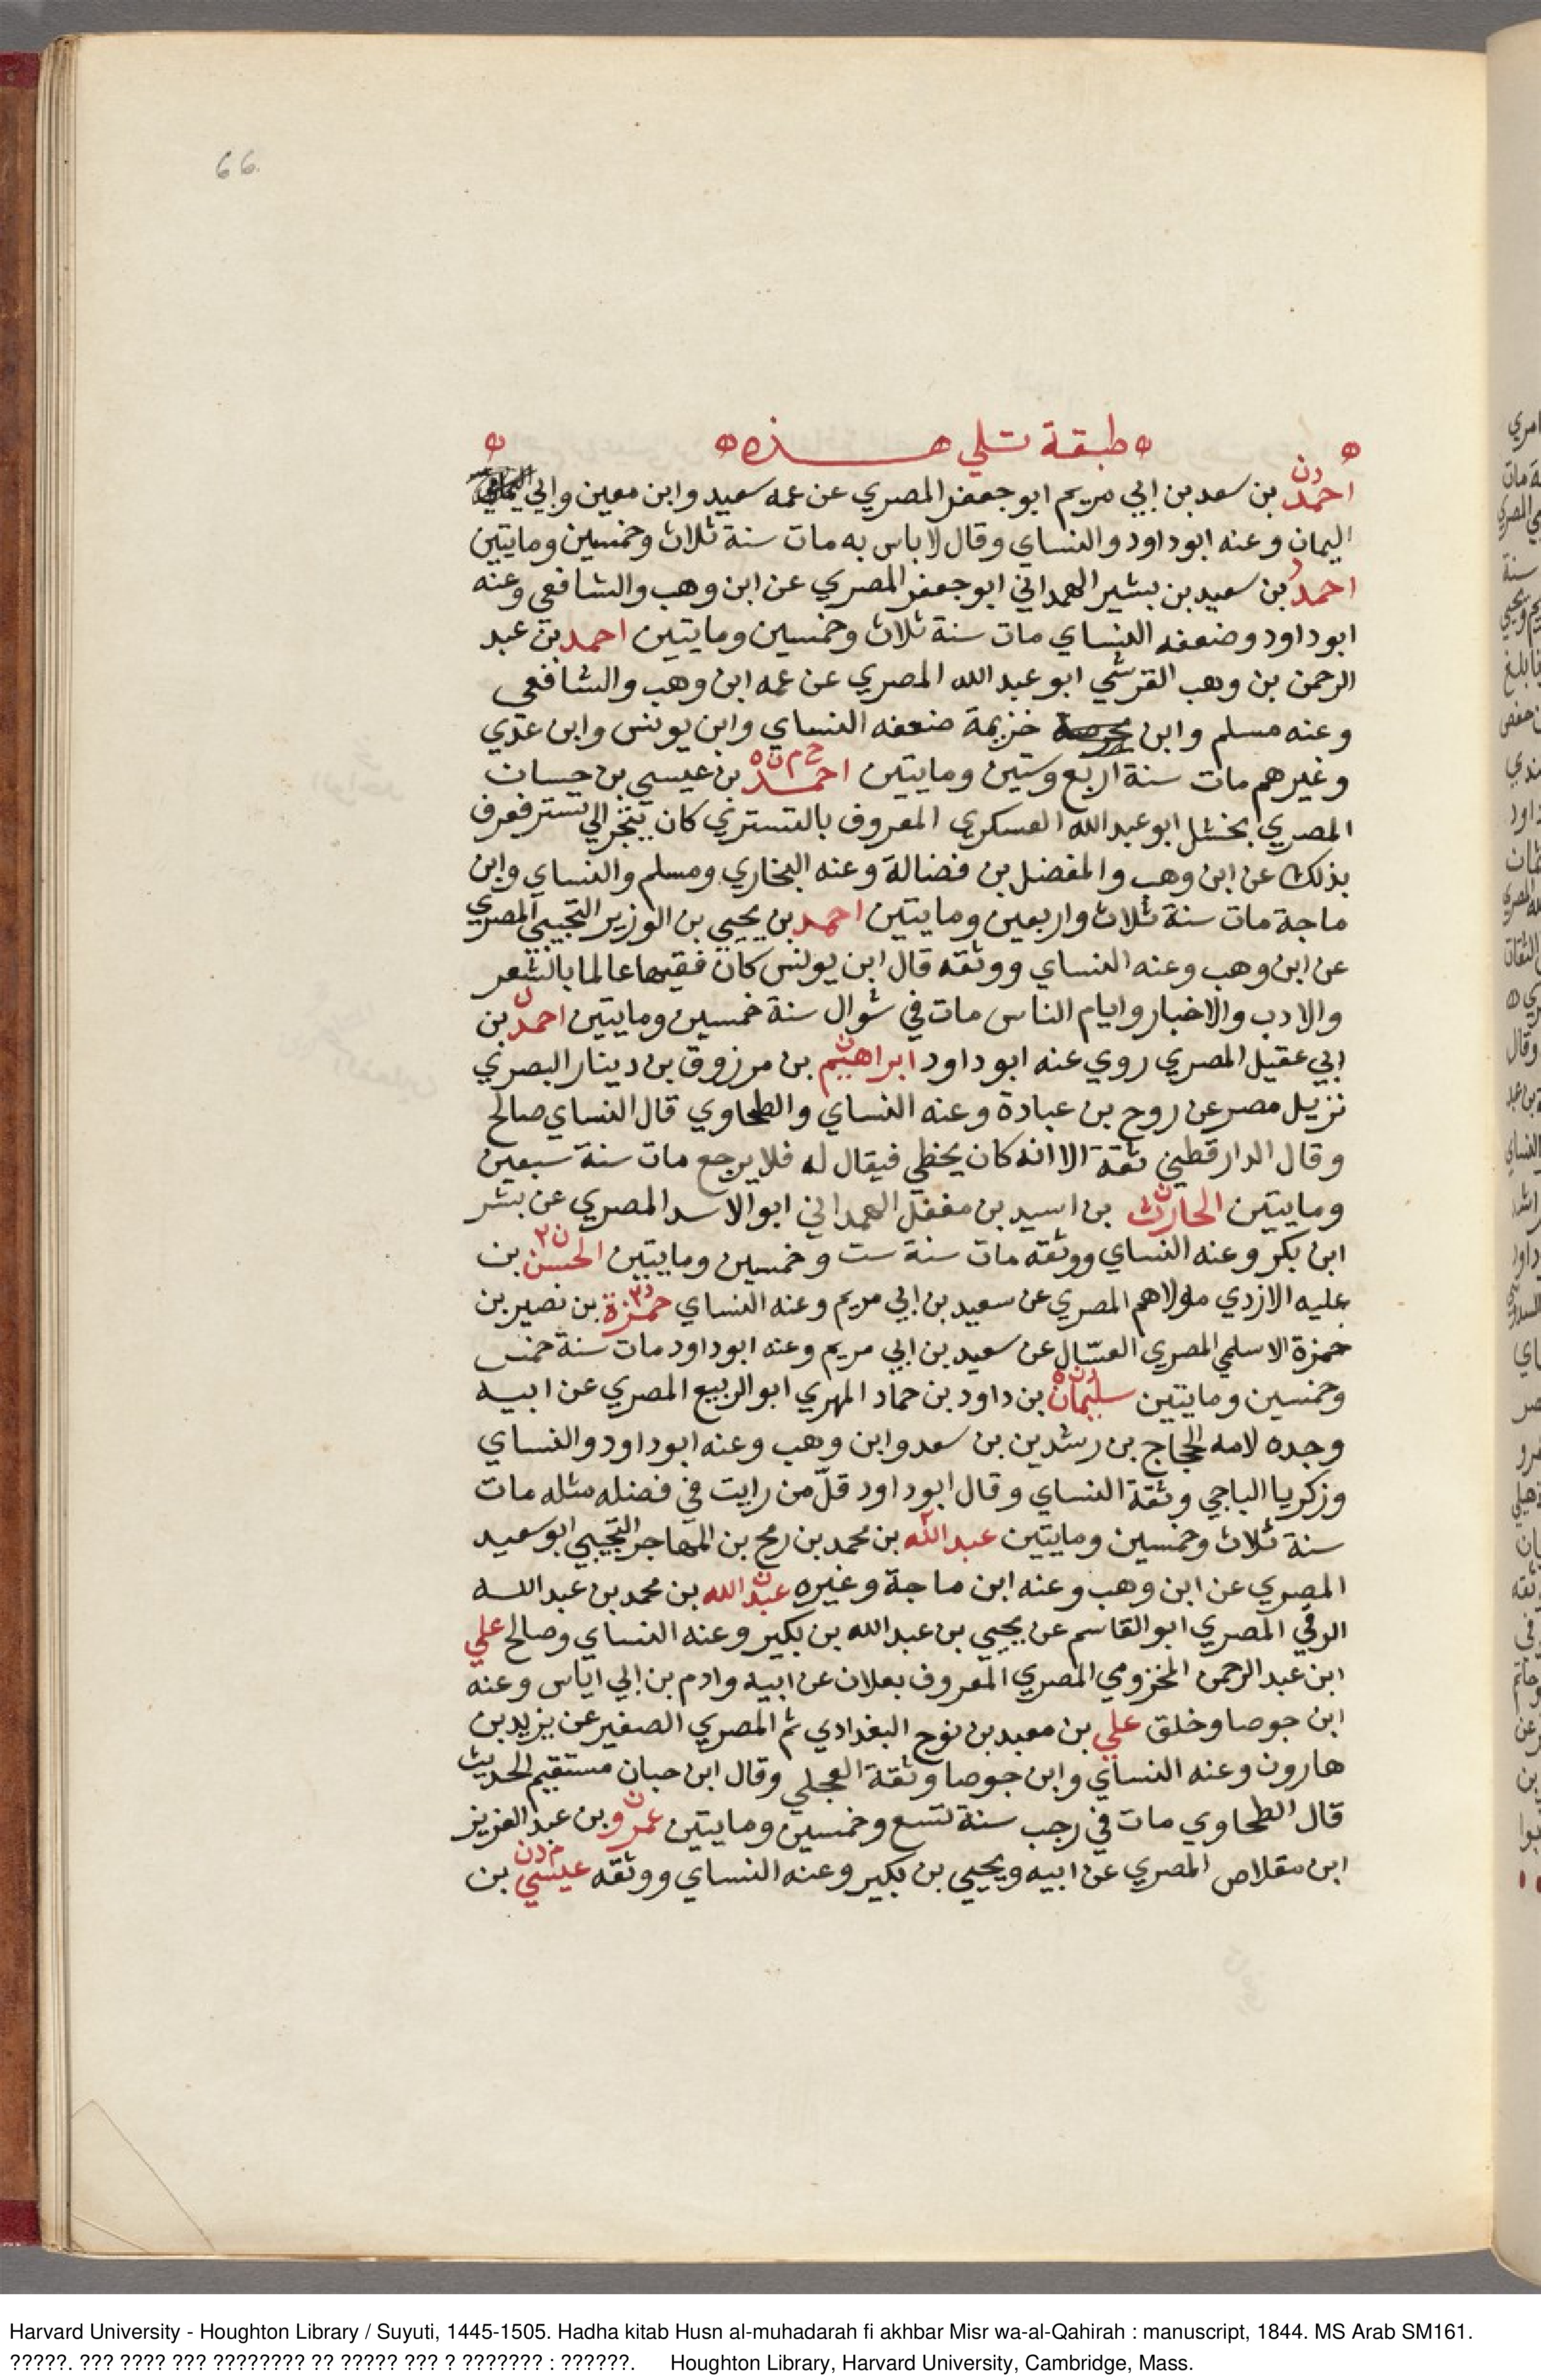 66
طبقة تلي هذه
احمد بن سعد بن ابي مريم ابو جعفر المصري عن عمه سعيد وابن معين وابي
اليمان وعنه ابو داود والنساي وقال لا باس به مات سنة ثلاث وخمسين ومايتين
احمد بن سعيد بن بشير الهمداني ابو جعفر المصري عن ابن وهب والشافعي وعنه
ابو داود وضعفه النساي مات سنة ثلاث وخمسين ومايتين احمد بن عبد
الرحمن بن وهب القرشي ابو عبد الله المصري عن عمه ابن وهب والشافعي
وعنه مسلم وابن خزيمة ضعفه النساي وابن يونس وابن عدي
وغيرهم مات سنة اربع وستين ومايتين احمد بن عيسي بن حسان
المصري بخشل ابو عبد الله العسكري المعروف بالتستري كان يتجر الي تستر فعرف
بذلك عن ابن وهب والمفضل بن فضالة وعنه البخاري ومسلم والنساي وابن
ماجة مات سنة ثلاث واربعين ومايتين احمد بن يحيي بن الوزير التجيبي المصري
عن ابن وهب وعنه النساي ووثقه قال ابن يونس كان فقيها عالما بالشعر
والادب والاخبار وايام الناس مات في شوال سنة خمسين ومايتين احمد بن
ابي عقيل المصري روي عنه ابو داود ابراهيم بن مرزوق بن دينار البصري
نزيل مصر عن روح بن عبادة وعنه النساي والطحاوي قال النساي صالح
وقال الدارقطني ثقة الا انه كان يخطي فيقال له فلا يرجع مات سنة سبعين
ومايتين الحارث بن اسيد بن معقل الهمداني ابو الاسد المصري عن بشر
ابن بكر وعنه النساي ووثقه مات سنة ست وخمسين ومايتين الحسن بن
عليه الازدي مولاهم المصري عن سعيد بن ابي مريم وعنه النساي حمزة بن نصير بن
حمزة الاسلمي المصري العسّال عن سعيد بن ابي مريم وعنه ابو داود مات سنة خمس
وخمسين ومايتين سليمان بن داود بن حماد المهري ابو الربيع المصري عن ابيه
وجده لامه الحجاج بن رشدين بن سعد وابن وهب وعنه ابو داود والنساي
وزكريا الباجي وثقة النساي وقال ابو داود قلّ من رايت في فضله مثله مات
سنة ثلاث وخمسين ومايتين عبد الله بن محمد بن رمح بن المهاجر التجيبي ابو سعيد
المصري عن ابن وهب وعنه ابن ماجة وغيره عبد الله بن محمد بن عبد الله
الرقي المصري ابو القاسم عن يحيي بن عبد الله بن بكير وعنه النساي وصالح علي
ابن عبد الرحمن المخزومي المصري المعروف بعلان عن ابيه وادم بن ابي اياس وعنه
ابن جوصا وخلق علي بن معبد بن نوح البغدادي ثم المصري الصغير عن يزيد بن
هارون وعنه النساي وابن جوصا وثقة العجلي وقال ابن حبان مستقيم الحديث
قال الطحاوي مات في رجب سنة تسع وخمسين ومايتين عمرو بن عبد العزيز
ابن مقلاص المصري عن ابيه ويحيي بن بكير وعنه النساي ووثقه عيسي بن
Harvard University - Houghton Library / Suyuti, 1445-1505. Hadha kitab Husn al-muhadarah fi akhbar Misr wa-al-Qahirah : manuscript, 1844. MS Arab SM161.
?????. ??? ???? ??? ???????? ?? ????? ??? ? ??????? : ??????. Houghton Library, Harvard University, Cambridge, Mass.